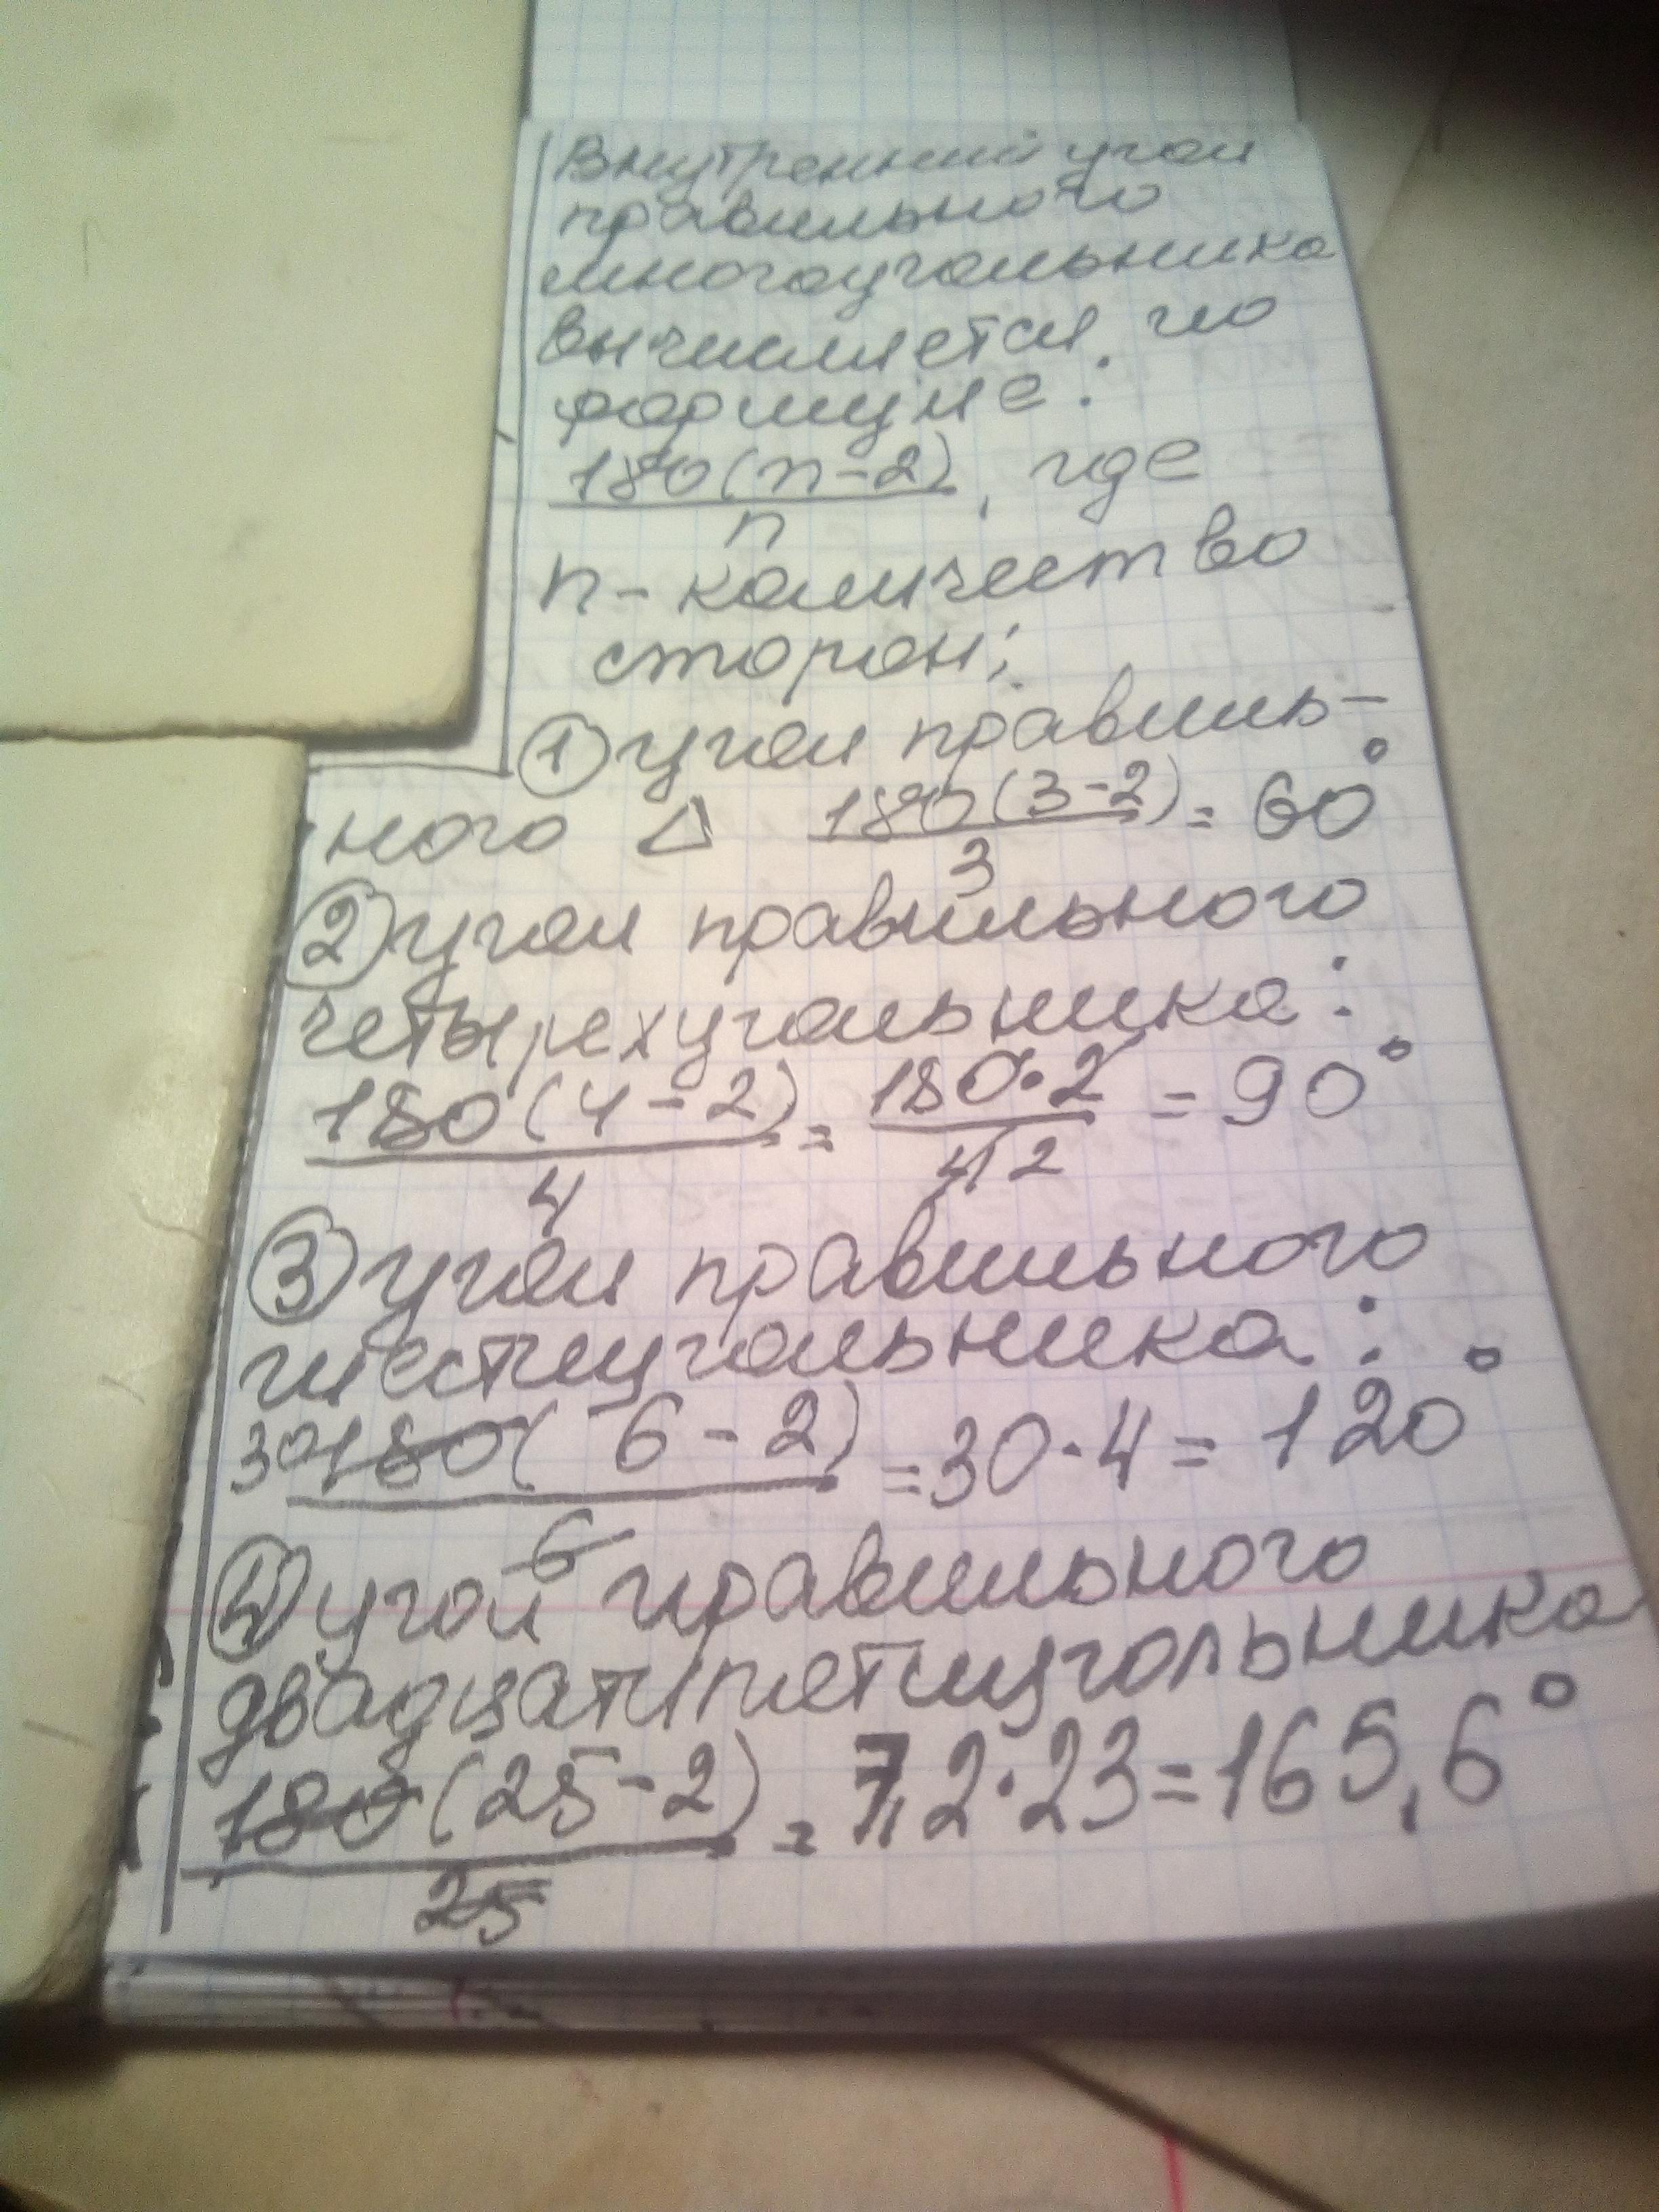 Внутренний угол
правильного
многоугольника
вычисляется по
формуле:
180(n-2)/n, где
n - количество
сторон;
① угол правиль-
ного △ 180(3-2)/3 = 60°
② угол правильного
четырехугольника:
180(4-2)/4 = 180·2/4 2 = 90°
③ угол правильного
шестиугольника:
30 180(6-2)/6 = 30·4 = 120°
④ угол правильного
двадцатипятиугольника
180(25-2)/25 = 7,2·23 = 165,6°